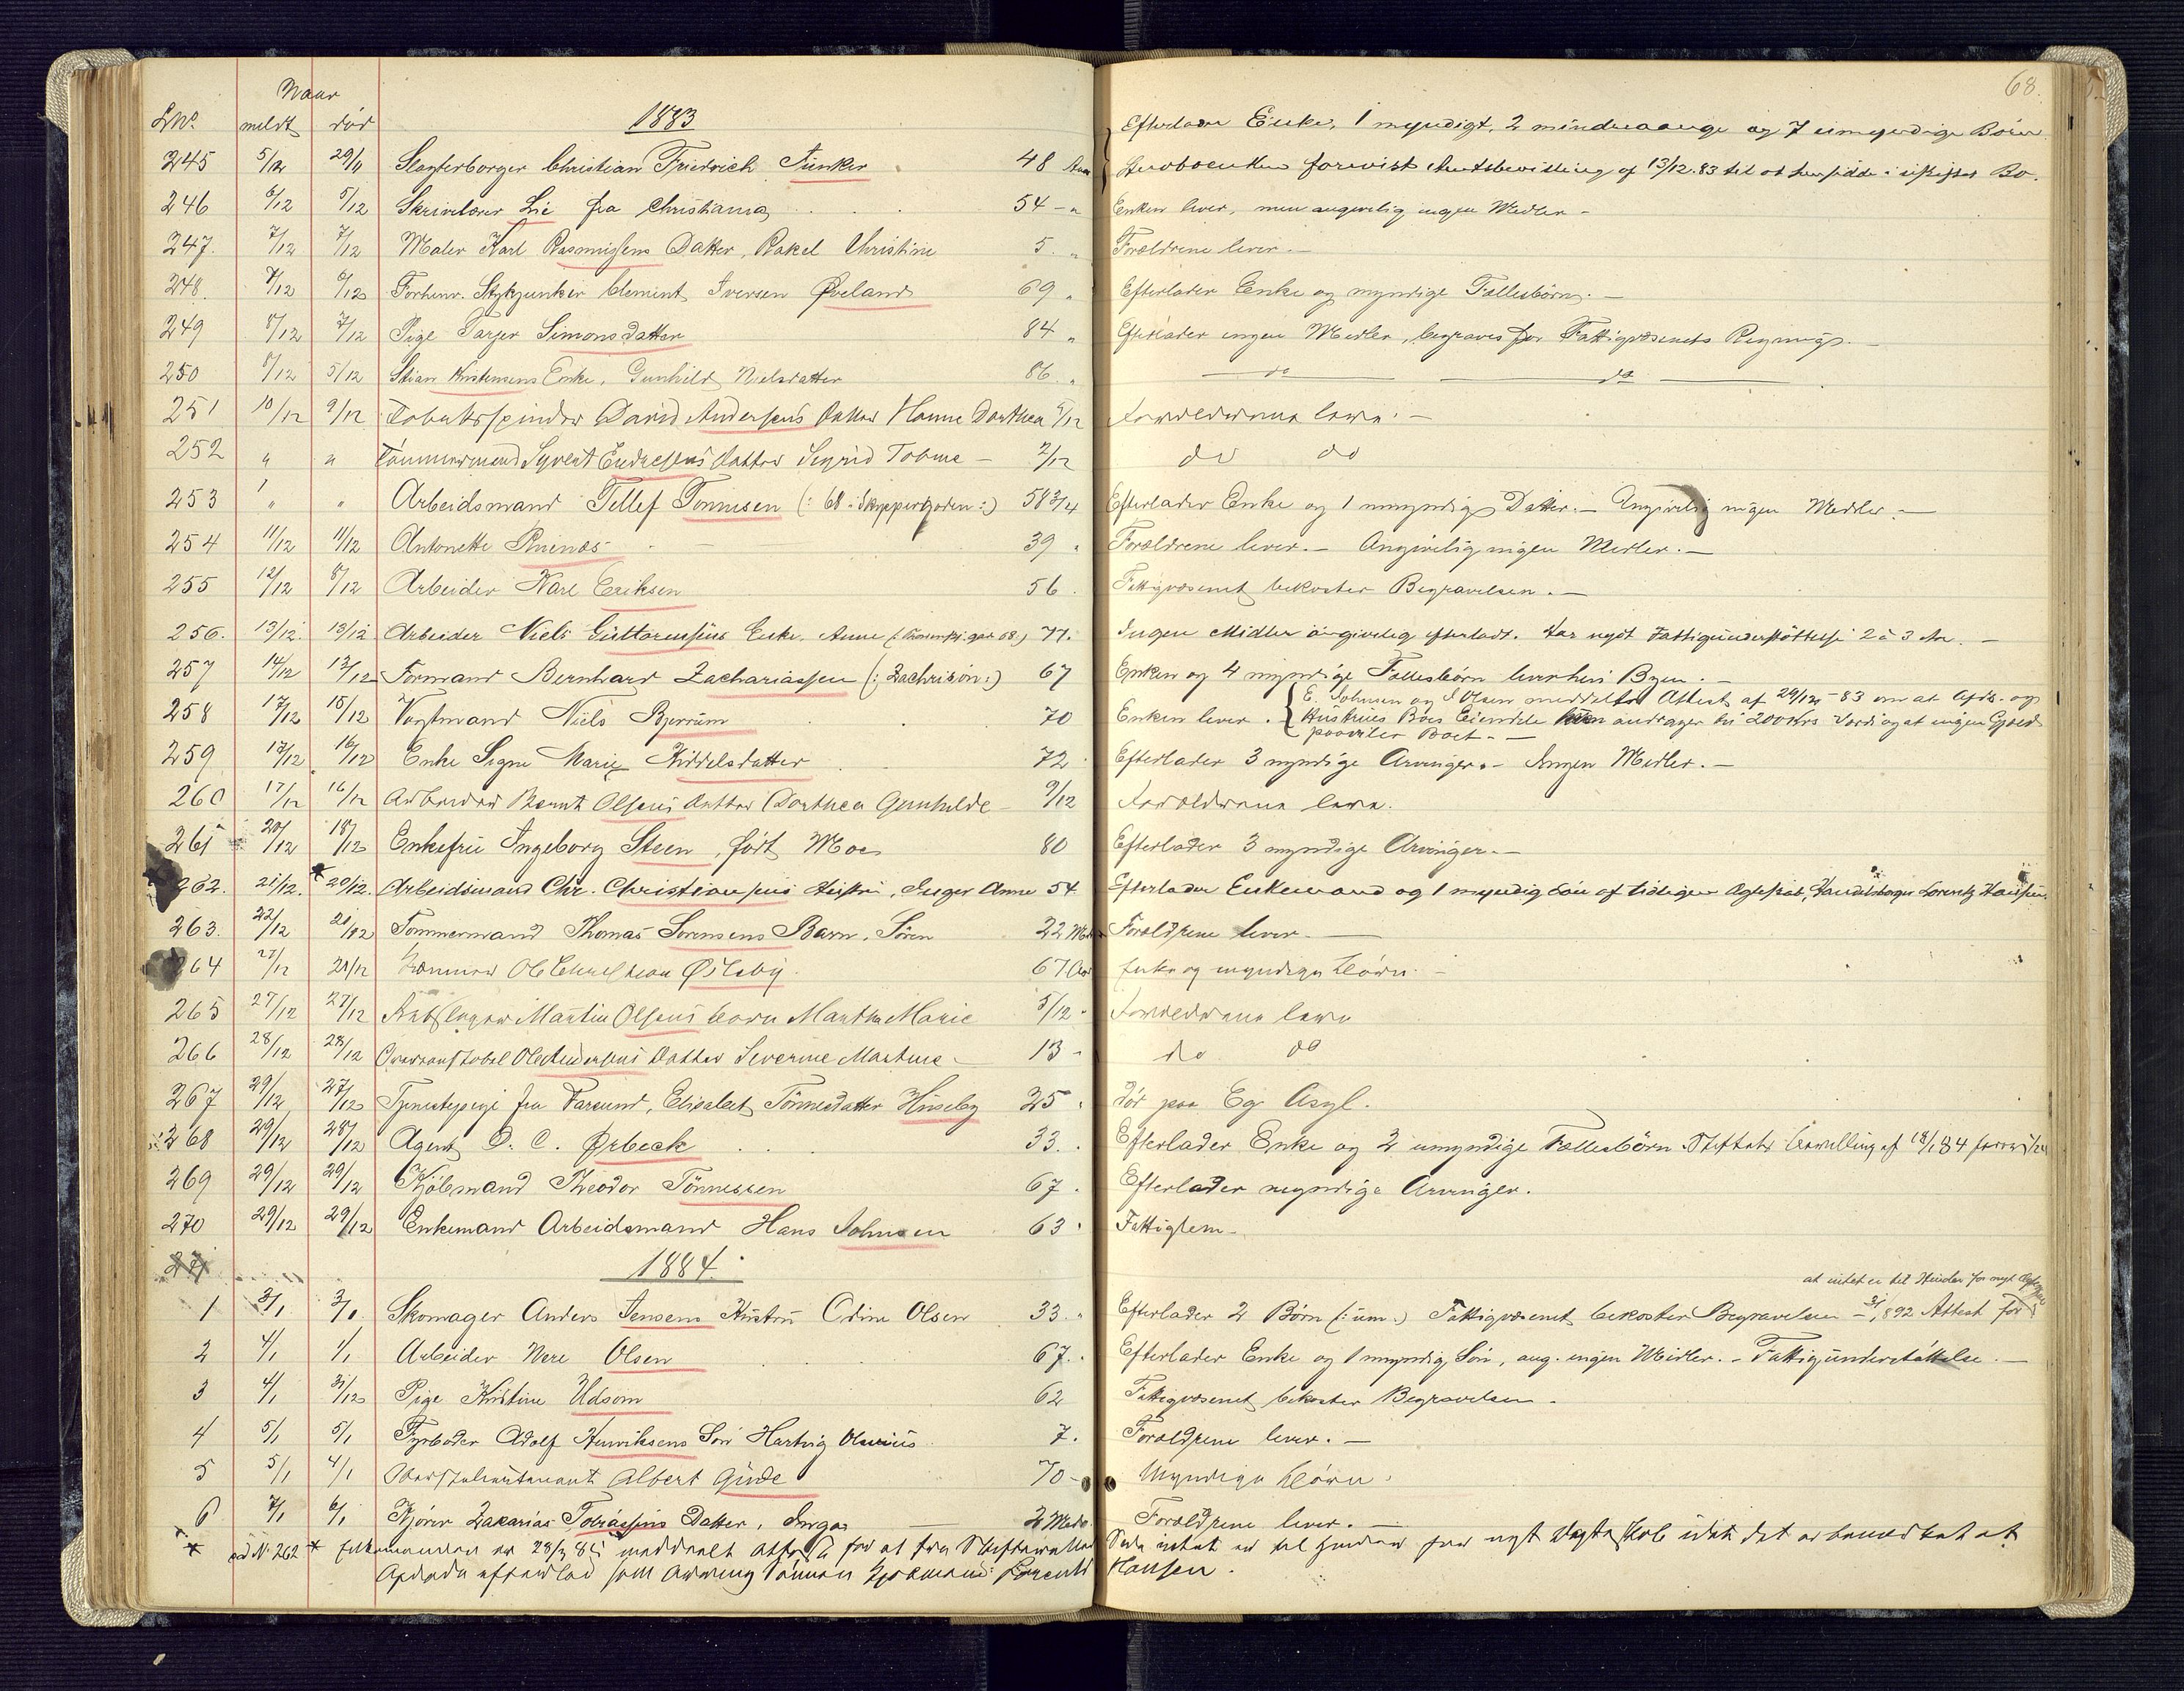 68.
Naar
LNo. meldt død 1883
Efterlader Enke, 1 myndigt, 2 mindreaarige og 7 umyndige Børn
245 5/12 29/11 Slagterborger Christian Friedrich Junker 48 Aar forevist Amtsbevilling af 13/12.83 til at hensidde i uskiftet Bo.
246 6/12 5/12 Skrivelærer Lie fra Christiania 54 - " Enken lever, men angivelig ingen Midler -
247. 7/12 7/12 Maler Karl Rasmussens Datter, Rakel Christine 5. " Forældrene lever. -
248. 7/12 6/12 Forhenv. Stykjunker Clement Iversen Øveland 69 " Efterlader Enke og myndige Fællesbørn. -
249 8/12 7/12 Pige Tarjer Simonsdatter 84 " Efterlader ingen Midler, begraves for Fattigvæsenets Regning. -
250 8/12 5/12 Stian Kristensens Enke, Gunhild Nielsdatter 86. " do do
251 10/12 9/12 Tobaksspinder David Andersens Datter Hanne Dorthea 5/12 Forældrene leve. -
252 " " Tømmermand Syvert Endresens Datter Sigrid Tobine - 2/12 do do
253 " " Arbeidsmand Tellef Tønnesen (: 68 i Skippergaden :) 58 3/4 Efterlader Enke og 1 umyndig Datter. - Angivelig ingen Midler. -
254 11/12 11/12 Antonette Ruenæs - 39 " Forældrene lever. - Angivelig ingen Midler. -
255 12/12 8/12 Arbeider Karl Eriksen 56. Fattigvæsenet bekoster Begravelsen. -
256. 13/12. 13/12 Arbeider Niels Guttormsens Enke, Anne 77. Ingen Midler angivelig efterladt. Har nydt Fattigunderstøttelse 2 à 3 Ar. -
257 14/12 13/12 Formand Bernhard Zachariassen (: Zachrison :) 67 Enken og 4 myndige Fællesbørn lever her i Byen. -
258 17/12 15/12 Vogtmand Niels Bjerrum 70 Enken lever. { E. Johnsen og J Olsen meddelte Attest af 29/12 - 83 om at Afdr. og
Hustrues Boes Eiendele andrager til 200 Krs Værdi og at ingen Gjæld
paahviler Boet. -
259 17/12 16/12 Enke Signe Marie Kiddelsdatter 72 Efterlader 3 myndige Arvinger. - Ingen Midler. -
260 17/12 16/12 Arbeider Bernt Olsens Datter Dorthea Gunhilde - 9/12 Forældrene leve.
261 20/12 18/12 Enkefru Ingeborg Steen, født Moe 80 Efterlader 3 myndige Arvinger. -
262. 21/12. * 20/12. Arbeidsmand Chr. Christiansens Hustru, Inger Anne 54. Efterlader Enkemand og 1 myndig Søn af tidligere Ægteskab, Handelsborger Lorentz Hansen.
263. 22/12 21/12 Tømmermand Thomas Sørensens Barn, Søren 22 Mdr Forældrene lever. -
264 27/12 21/12 Ole Christian Øilsby. 67 Aar Enke og myndige Børn. -
265 27/12 27/12 Rebslager Martin Olsens barn Martha Marie 5/12 - Forældrene leve
266 28/12 28/12 Ole Andersens Datter Severine Martine - 13 - do do
267 29/12 27/12 Tjenestepige fra Farsund, Elisabet Tønnesdatter Huseby 25 " død paa Eg Asyl.
268 29/12 28/12 Agent D. C. Ørbeck 33. " Efterlader Enke og 2 umyndige Fællesbørn. Skiftets bevilling af 18/1 84 forevist
269 29/12 29/12 Kjølemand Theodor Tønnessen 67. Efterlader myndige Arvinger.
270 29/12 29/12 Enkemand Arbeidsmand Hans Johnsen 63. Fattiglem -
271 1884.
at intet er til Hinder for nyt Ægteskab
1 3/1 3/1 Skomager Anders Jensens Hustru Odine Olsen 33. " Efterlader 2 Børn (: um.) Fattigvæsenet bekoster Begravelsen - 1892 Attest for
2 4/1 1/1 Arbeider Nere Olsen 67. Efterlader Enke og 1 myndig Søn, ang. ingen Midler. - Fattigunderstøttelse. -
3 4/1 31/12 Pige Kristine Udsom 62 Fattigvæsenet bekoster Begravelsen -
4 5/1 5/1 Fyrbøder Adolf Henriksens Søn Hartvig Olenius 7. Forældrene lever. -
5 5/1 4/1 Oberstløitenant Albert Gude 70 - Myndige Børn.
6 7/1 6/1 Kjører Zakarias Tobiassens Datter, Inga 2 Mdr. Forældrene lever. -
* ad No 262 * Enkemanden er 28/3 85 meddelt Attest for at fra Skifterettens Side intet er til hinder for nyt Ægteskab idet det er bemerket at
Afdøde efterlod som Arving Sønnen Lorentz Hansen.